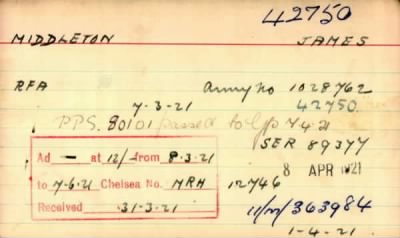 42750
MIDDLETON JAMES
RFA Army No 1028762
7-3-21 42750
PPS. 80101 passed to 7 4 21
SER 89377
Ad — at 12/- from 8.3.21
8 APR 1921
to 7-6-21 Chelsea No. MRH 12746
Received 31-3-21 11/M/363984
1-4-21